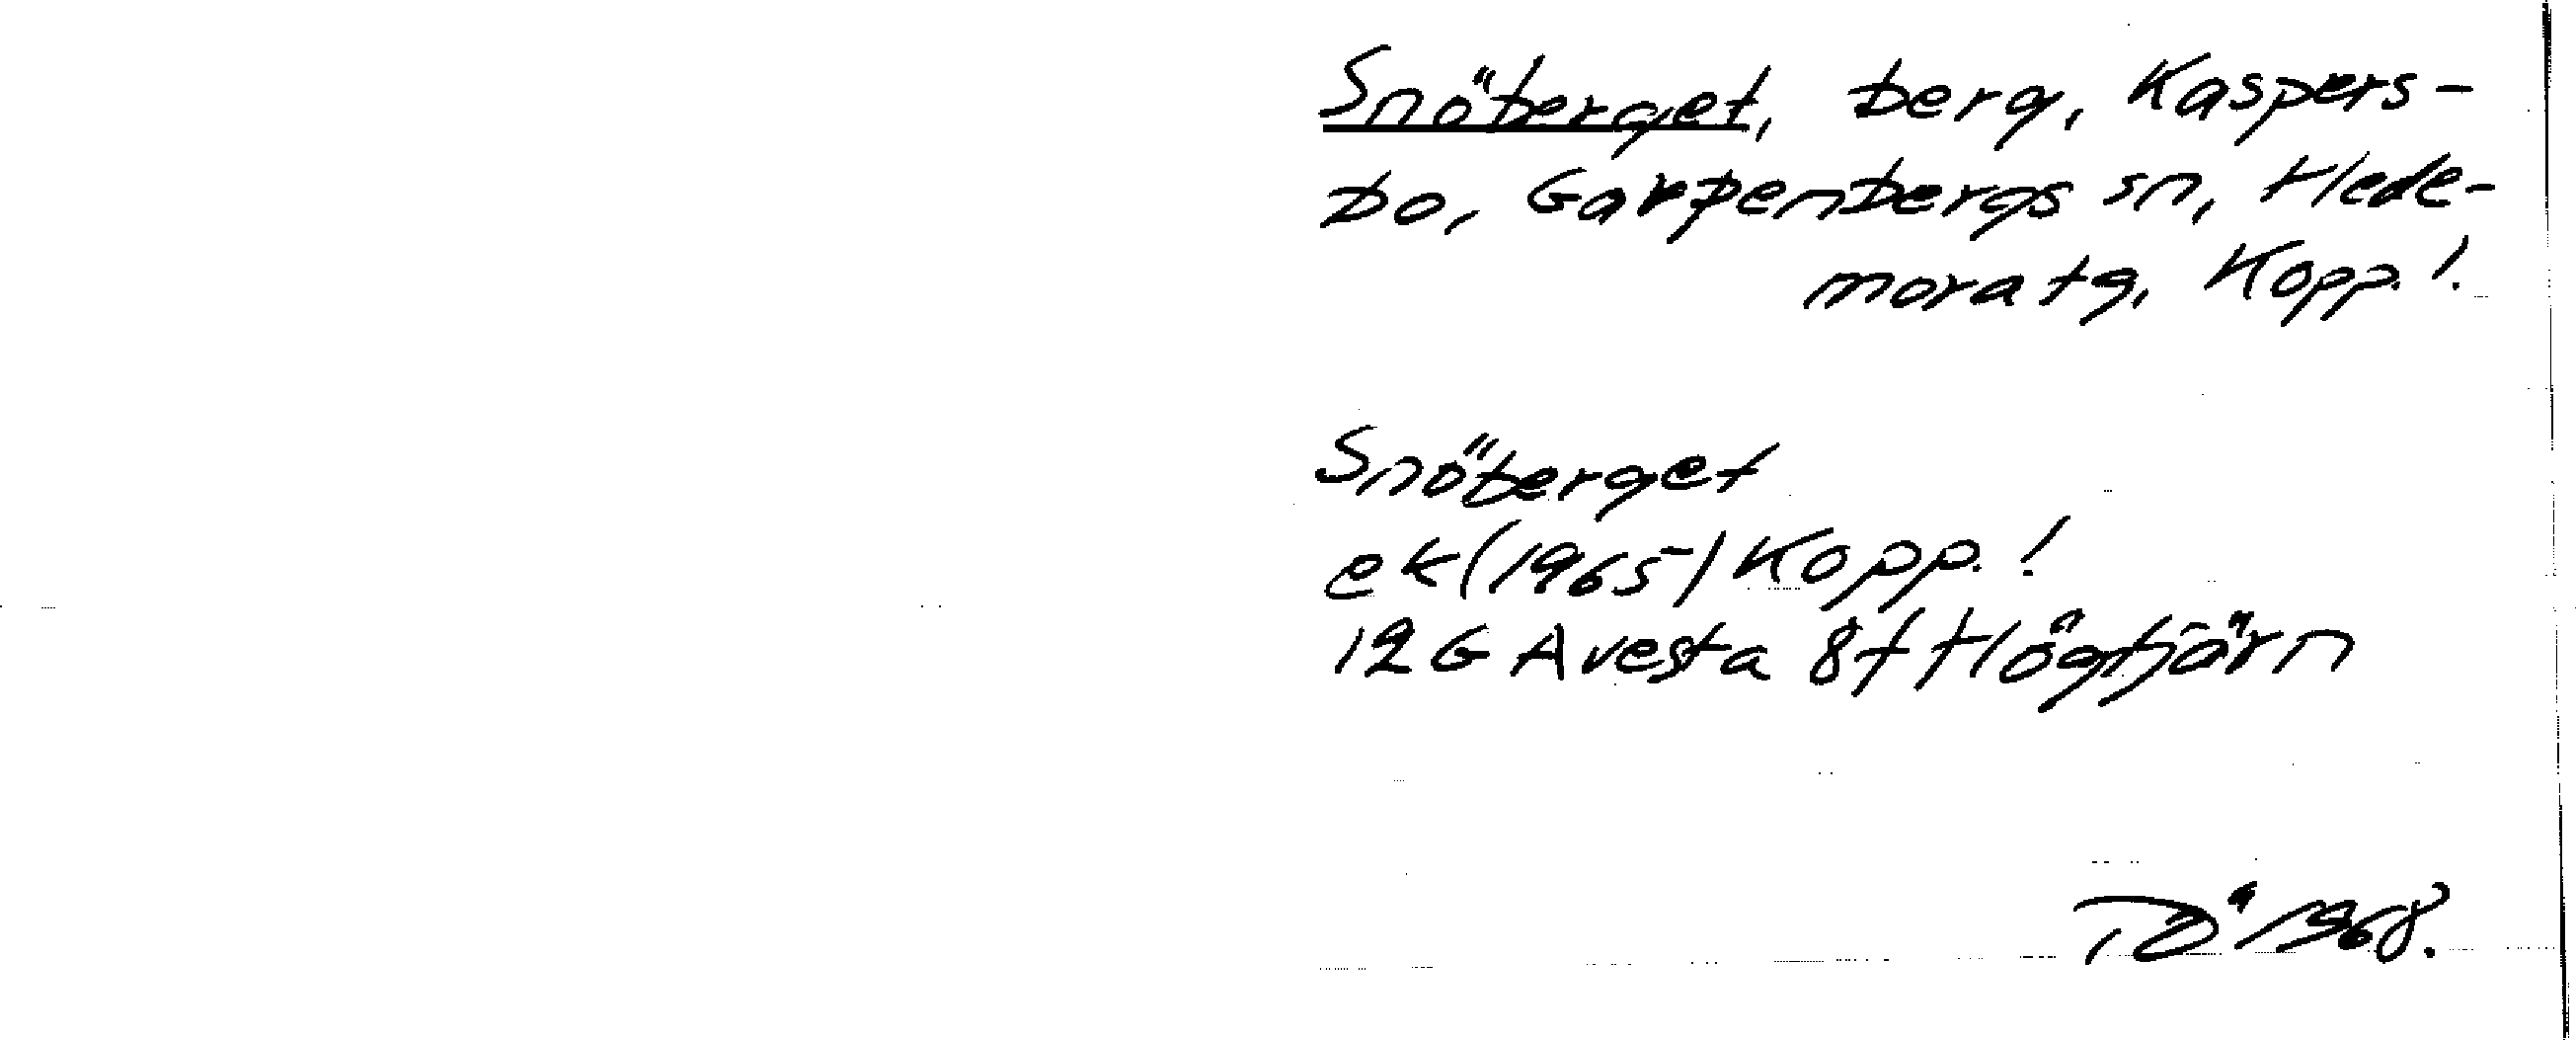 Snöberget, berg, Kaspers-
bo, Garpenbergs sn, Hede-
mora tg, Kopp. l.
Snöberget
ek (1965) Kopp. l.
12 G Avesta 8f Högtjärn
1968.